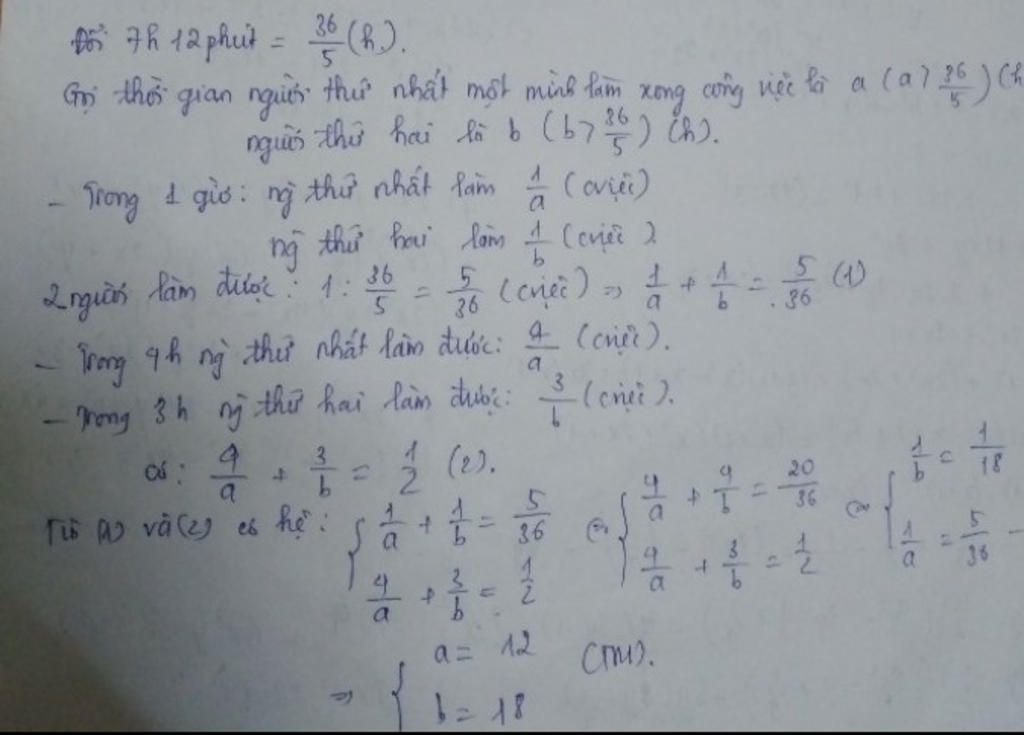 Đổi 7h 12 phút = 36/5 (h).
Gọi thời gian người thứ nhất một mình làm xong công việc là a (a > 36/5) (h
người thứ hai là b (b > 36/5) (h).
- Trong 1 giờ: ng` thứ nhất làm 1/a (cviệc)
ng` thứ hai làm 1/b (cviệc).
2 người làm được: 1 : 36/5 = 5/36 (cviệc) => 1/a + 1/b = 5/36 (1)
- Trong 4h ng` thứ nhất làm được: 4/a (cviệc).
- Trong 3h ng` thứ hai làm được: 3/b (cviệc).
có: 4/a + 3/b = 1/2 (2).
Từ (1) và (2) có hệ: { 1/a + 1/b = 5/36 ⇔ { 4/a + 4/b = 20/36 ⇔ { 1/b = 1/18
4/a + 3/b = 1/2 4/a + 3/b = 1/2 1/a = 5/36 -
=> { a = 12 (TM).
b = 18